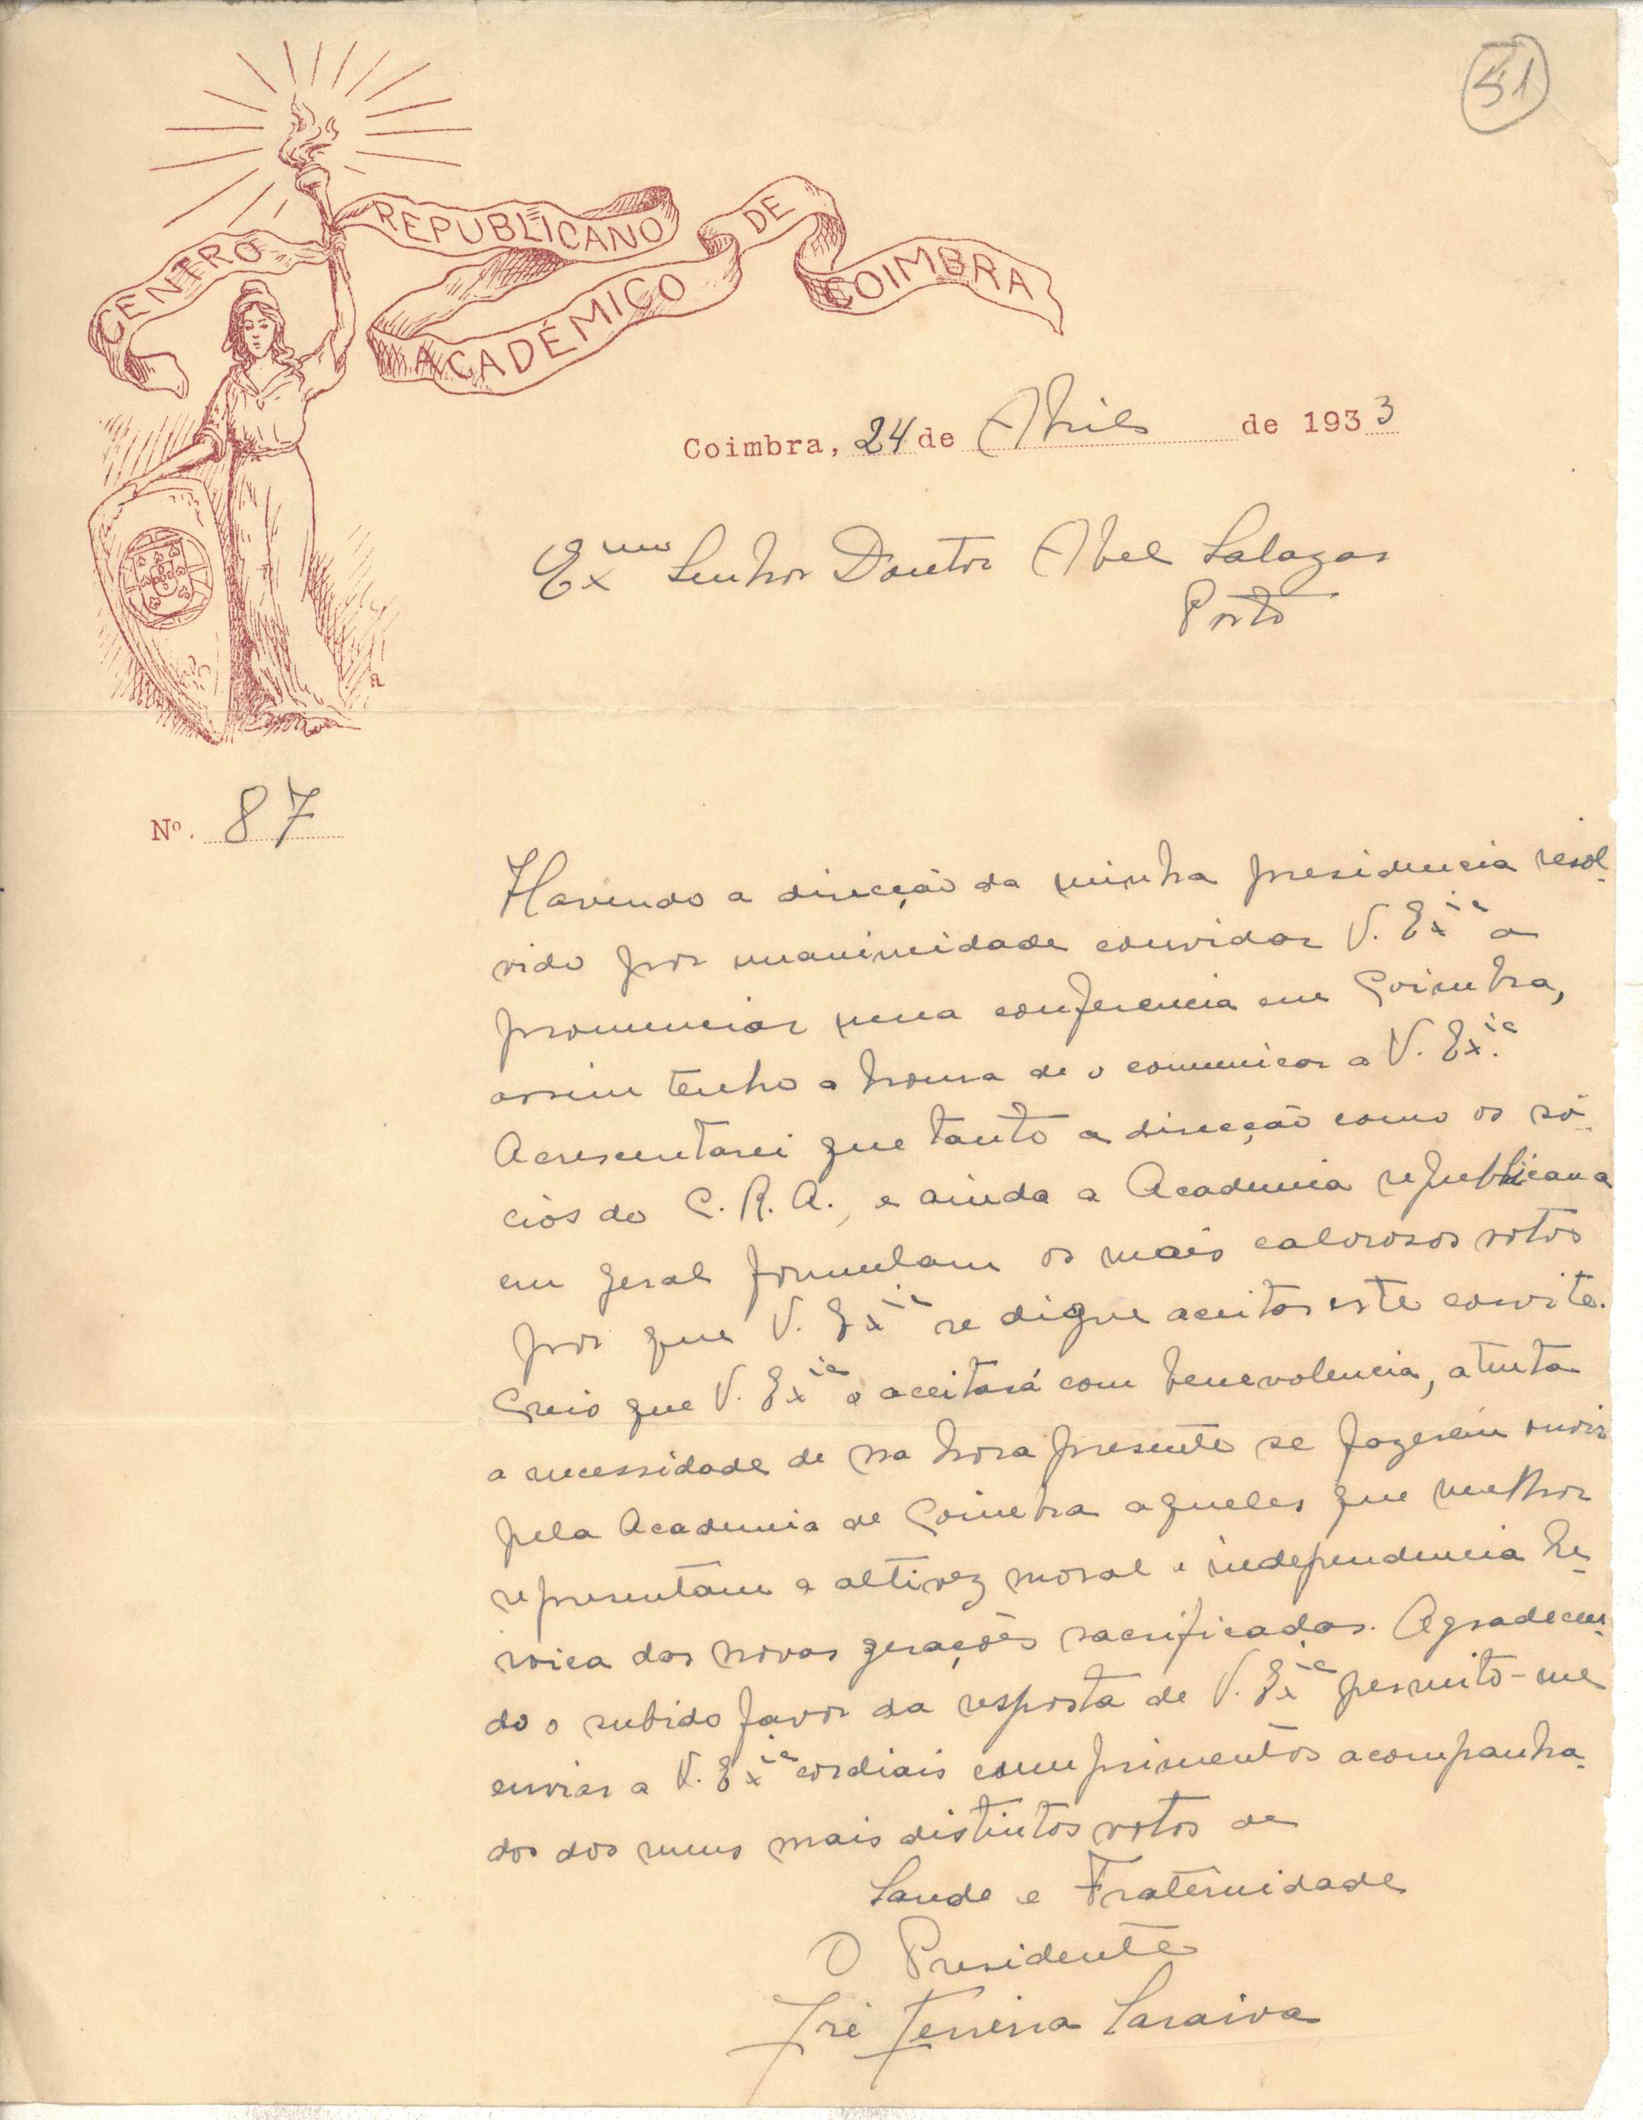 51
CENTRO REPUBLICANO ACADÉMICO DE COIMBRA
Coimbra, 24 de Abril de 1933
Exmo Senhor Doutor Abel Salazar
Porto
Nº. 87
Havendo a direcção da minha presidencia resol-
vido por unanimidade convidar V. Exia a
pronunciar uma conferencia em Coimbra,
assim tenho a honra de o comunicar a V. Exia.
Acrescentarei que tanto a direcção como os só-
cios do C. R. A., e ainda a Academia republicana
em geral formulam os mais calorosos votos
por que V. Exia se digne aceitar este convite.
Creio que V. Exia o aceitará com benevolencia, atenta
a necessidade de na hora presente se fazerem ouvir
pela Academia de Coimbra aqueles que melhor
representam a altivez moral e independencia he-
roica das novas gerações sacrificadas. Agradecen-
do o subido favor da resposta de V. Exia permito-me
enviar a V. Exia cordiais comprimentos acompanha-
dos dos meus mais distintos votos de
Saude e Fraternidade
O Presidente
José Ferreira Saraiva